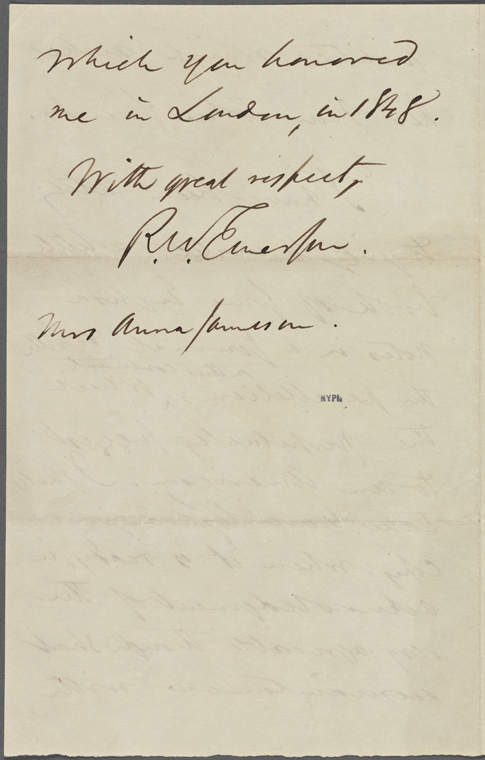 which you honored
me in London, in 1848.
With great respect,
R. W. Emerson.
Mrs Anna Jameson.
NYPL